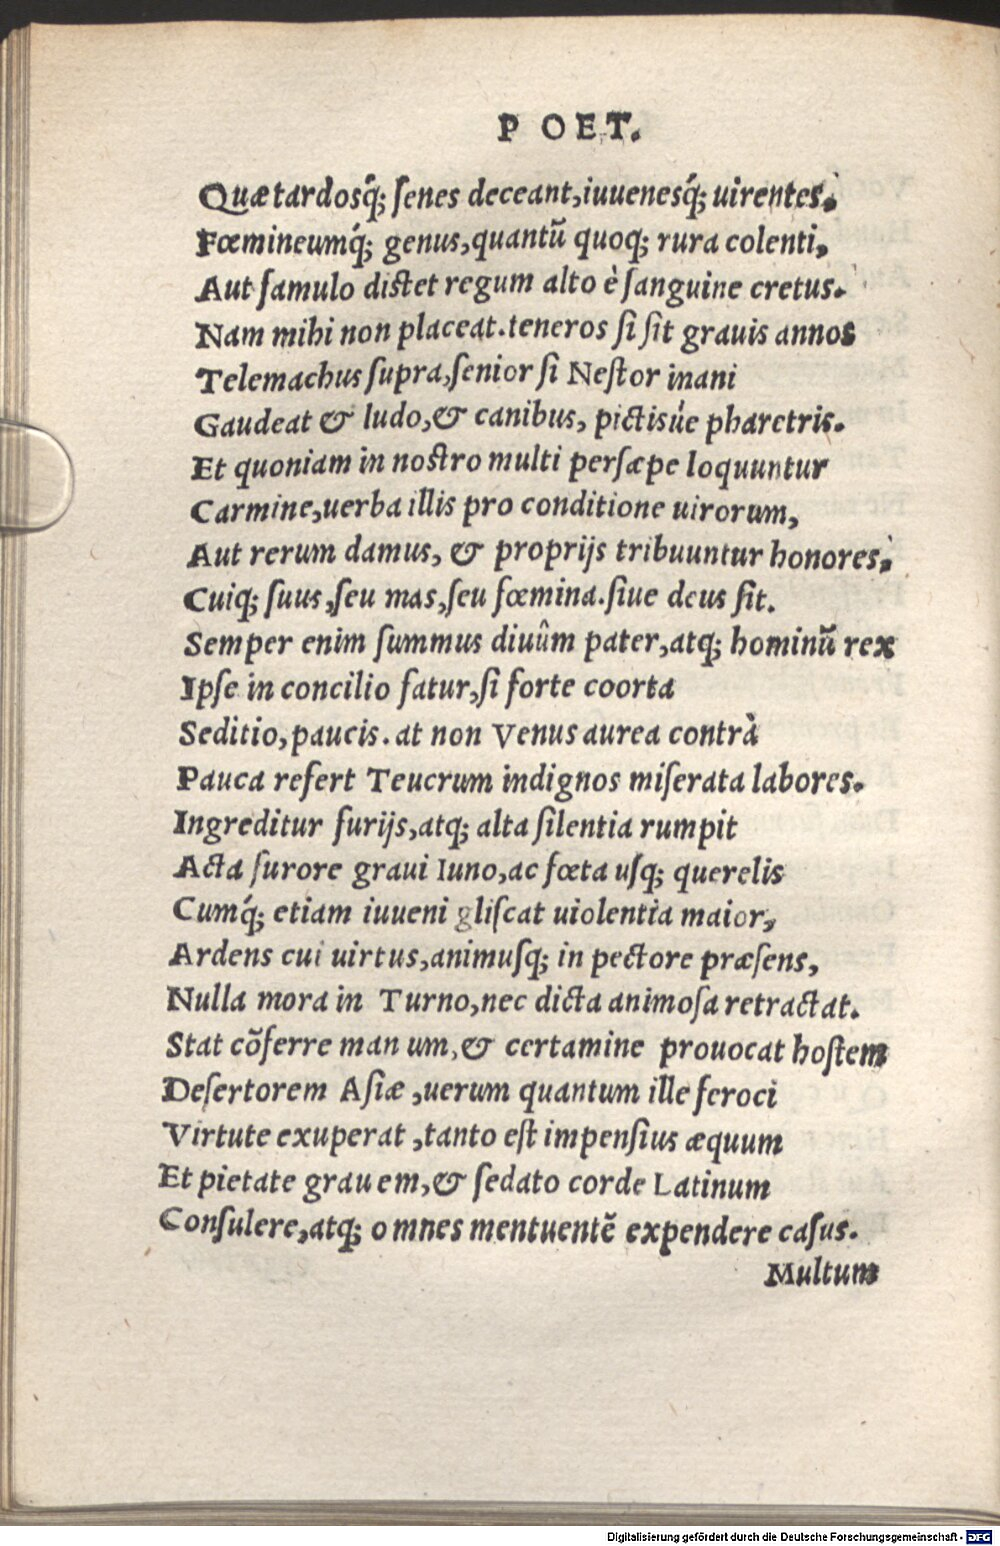 P OET.
Quæ tardosq́; ſenes deceant,iuuenesq́; uirentes,
Fœmineumq́; genus,quantũ quoq; rura colenti,
Aut ſamulo diſtet regum alto è ſanguine cretus.
Nam mihi non placeat.teneros ſi ſit grauis annos
Telemachus ſupra,ſenior ſi Neſtor inani
Gaudeat & ludo,& canibus, pictisúe pharetris.
Et quoniam in noſtro multi perſæpe loquuntur
Carmine,uerba illis pro conditione uirorum,
Aut rerum damus, & proprijs tribuuntur honores,
Cuiq; ſuus,ſeu mas,ſeu fœmina.ſiue deus ſit.
Semper enim ſummus diuûm pater,atq; hominũ rex
Ipſe in concilio fatur,ſi forte coorta
Seditio,paucis.at non Venus aurea contrà
Pauca refert Teucrum indignos miſerata labores.
Ingreditur furijs,atq; alta ſilentia rumpit
Acta furore graui Iuno,ac fœta uſq; querelis
Cumq́; etiam iuueni gliſcat uiolentia maior,
Ardens cui uirtus,animuſq; in pectore præſens,
Nulla mora in Turno,nec dicta animoſa retractat.
Stat cõferre man um,& certamine prouocat hoſtem
Deſertorem Aſiæ ,uerum quantum ille feroci
Virtute exuperat ,tanto eſt impenſius æquum
Et pietate grau em,& ſedato corde Latinum
Conſulere,atq; o mnes mentuentẽ expendere caſus.
Multum
Digitalisierung gefördert durch die Deutsche Forschungsgemeinschaft - DFG